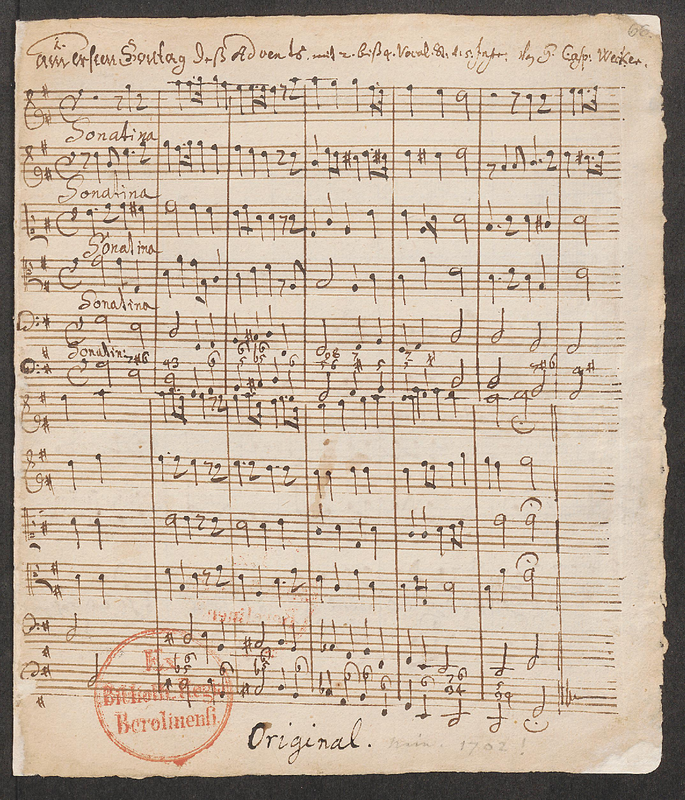 66.
am ersten Sontag deß Advents. mit 2. biß 4. Vocal. & 4. 5. Instr. Von G. Casp. Wecker.
Sonatina
Sonatina
Sonatina
Sonatina
Sonatin:
Ex
Biblioth. Regia
Berolinensi
Original. 1702!